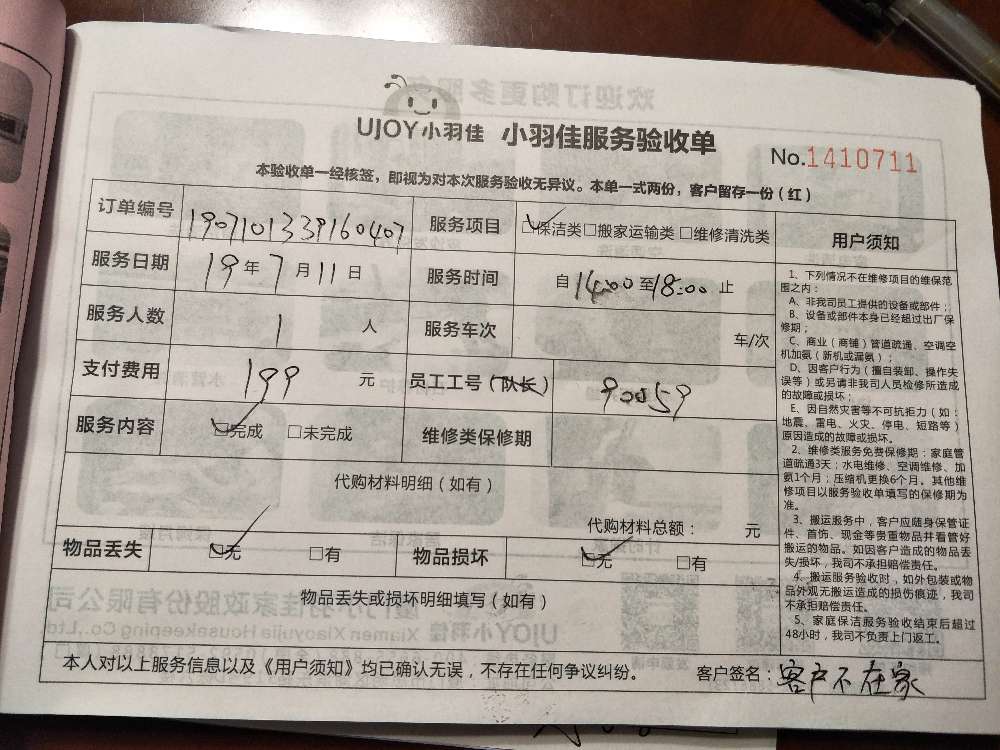 UJOY小羽佳 小羽佳服务验收单
No.1410711
本验收单一经核签，即视为对本次服务验收无异议。本单一式两份，客户留存一份（红）
订单编号 1907101339160407 服务项目 ☑保洁类□搬家运输类 □维修清洗类
服务日期 19年7月11日 服务时间 自14:00至18:00止
服务人数 1人 服务车次 车/次
支付费用 199元 员工工号（队长） 90059
服务内容 ☑完成 □未完成 维修类保修期
代购材料明细（如有）
代购材料总额： 元
物品丢失 ☑无 □有 物品损坏 ☑无 □有
物品丢失或损坏明细填写（如有）
本人对以上服务信息以及《用户须知》均已确认无误，不存在任何争议纠纷。 客户签名：客户不在家
用户须知
1、下列情况不在维修项目的维保范
围之内：
A、非我司员工提供的设备或部件；
B、设备或部件本身已经超过出厂保
修期；
C、商业（商铺）管道疏通、空调空
机加氨（新机或漏氨）；
D、因客户行为（擅自装卸、操作失
误等）或另请非我司人员检修所造成
的故障或损坏；
E、因自然灾害等不可抗拒力（如：
地震、雷电、火灾、停电、短路等）
原因造成的故障或损坏。
2、维修类服务免费保修期：家庭管
道疏通3天；水电维修、空调维修、加
氨1个月；压缩机更换6个月。其他维
修项目以服务验收单填写的保修期为
准。
3、搬运服务中，客户应随身保管证
件、首饰、现金等贵重物品并看管好
搬运的物品。如因客户造成的物品丢
失/损坏，我司不承担赔偿责任。
4、搬运服务验收时，如外包装或物
品外观无搬运造成的损伤痕迹，我司
不承担赔偿责任。
5、家庭保洁服务验收结束后超过
48小时，我司不负责上门返工。